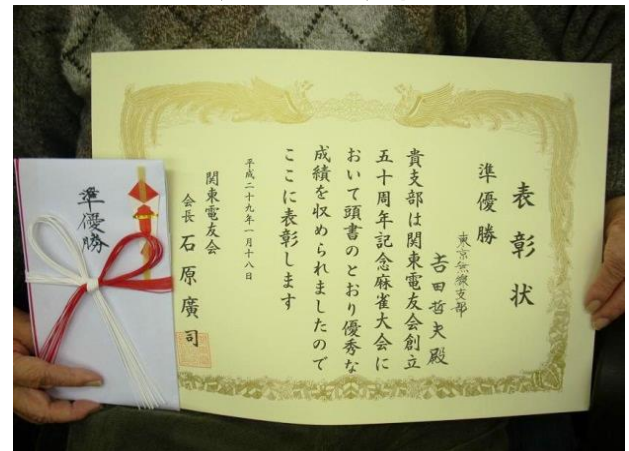 表彰状
準優勝
東京無線支部
吉田哲夫殿
貴支部は関東電友会創立
五十周年記念麻雀大会に
おいて頭書のとおり優秀な
成績を収められましたので
ここに表彰します
平成二十九年一月十八日
関東電友会
会長 石原廣司
準優勝